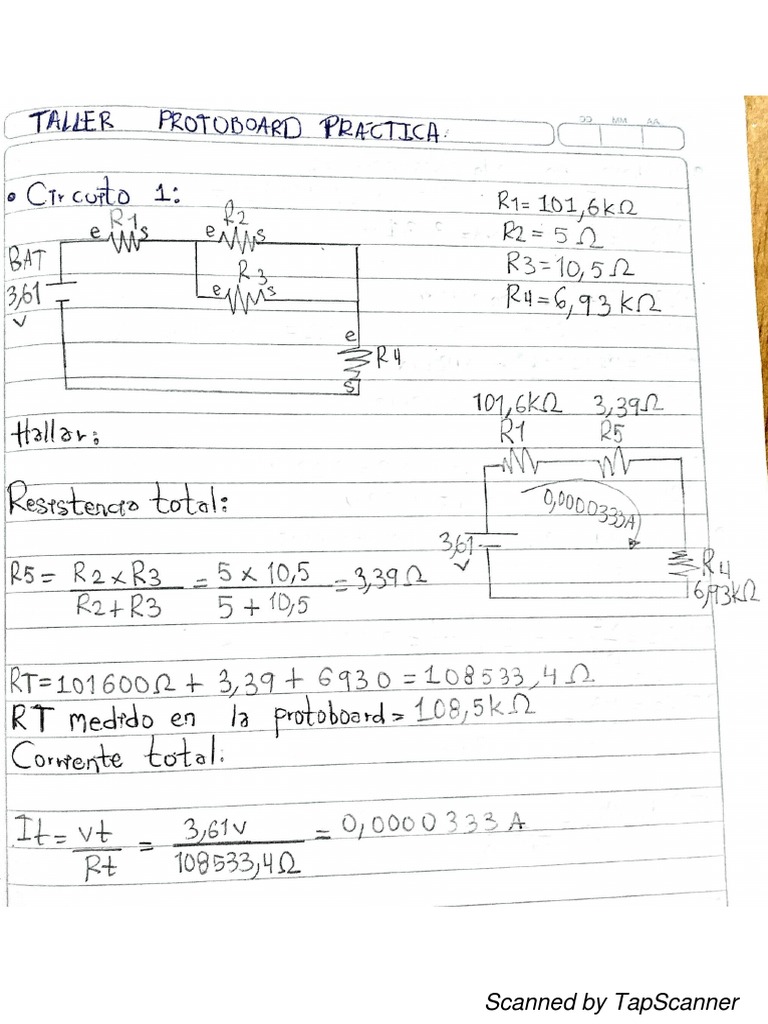 TALLER PROTOBOARD PRACTICA.
DD MM AA
• Circuito 1:
R1 = 101,6kΩ
R2 = 5 Ω
R3 = 10,5Ω
R4 = 6,93 kΩ
e R1 s
e R2 s
e R3 s
BAT
3,61
v
e
R4
s
Hallar:
101,6kΩ 3,39Ω
R1 R5
0,0000333A
3,61
v
R4
6,93kΩ
Resistencia total:
R5 = R2 x R3 / R2 + R3 = 5 x 10,5 / 5 + 10,5 = 3,39Ω
RT = 101600Ω + 3,39 + 6930 = 108533,4Ω
RT medido en la protoboard = 108,5kΩ
Corriente total:
It = vt / Rt = 3,61v / 108533,4Ω = 0,0000333 A
Scanned by TapScanner